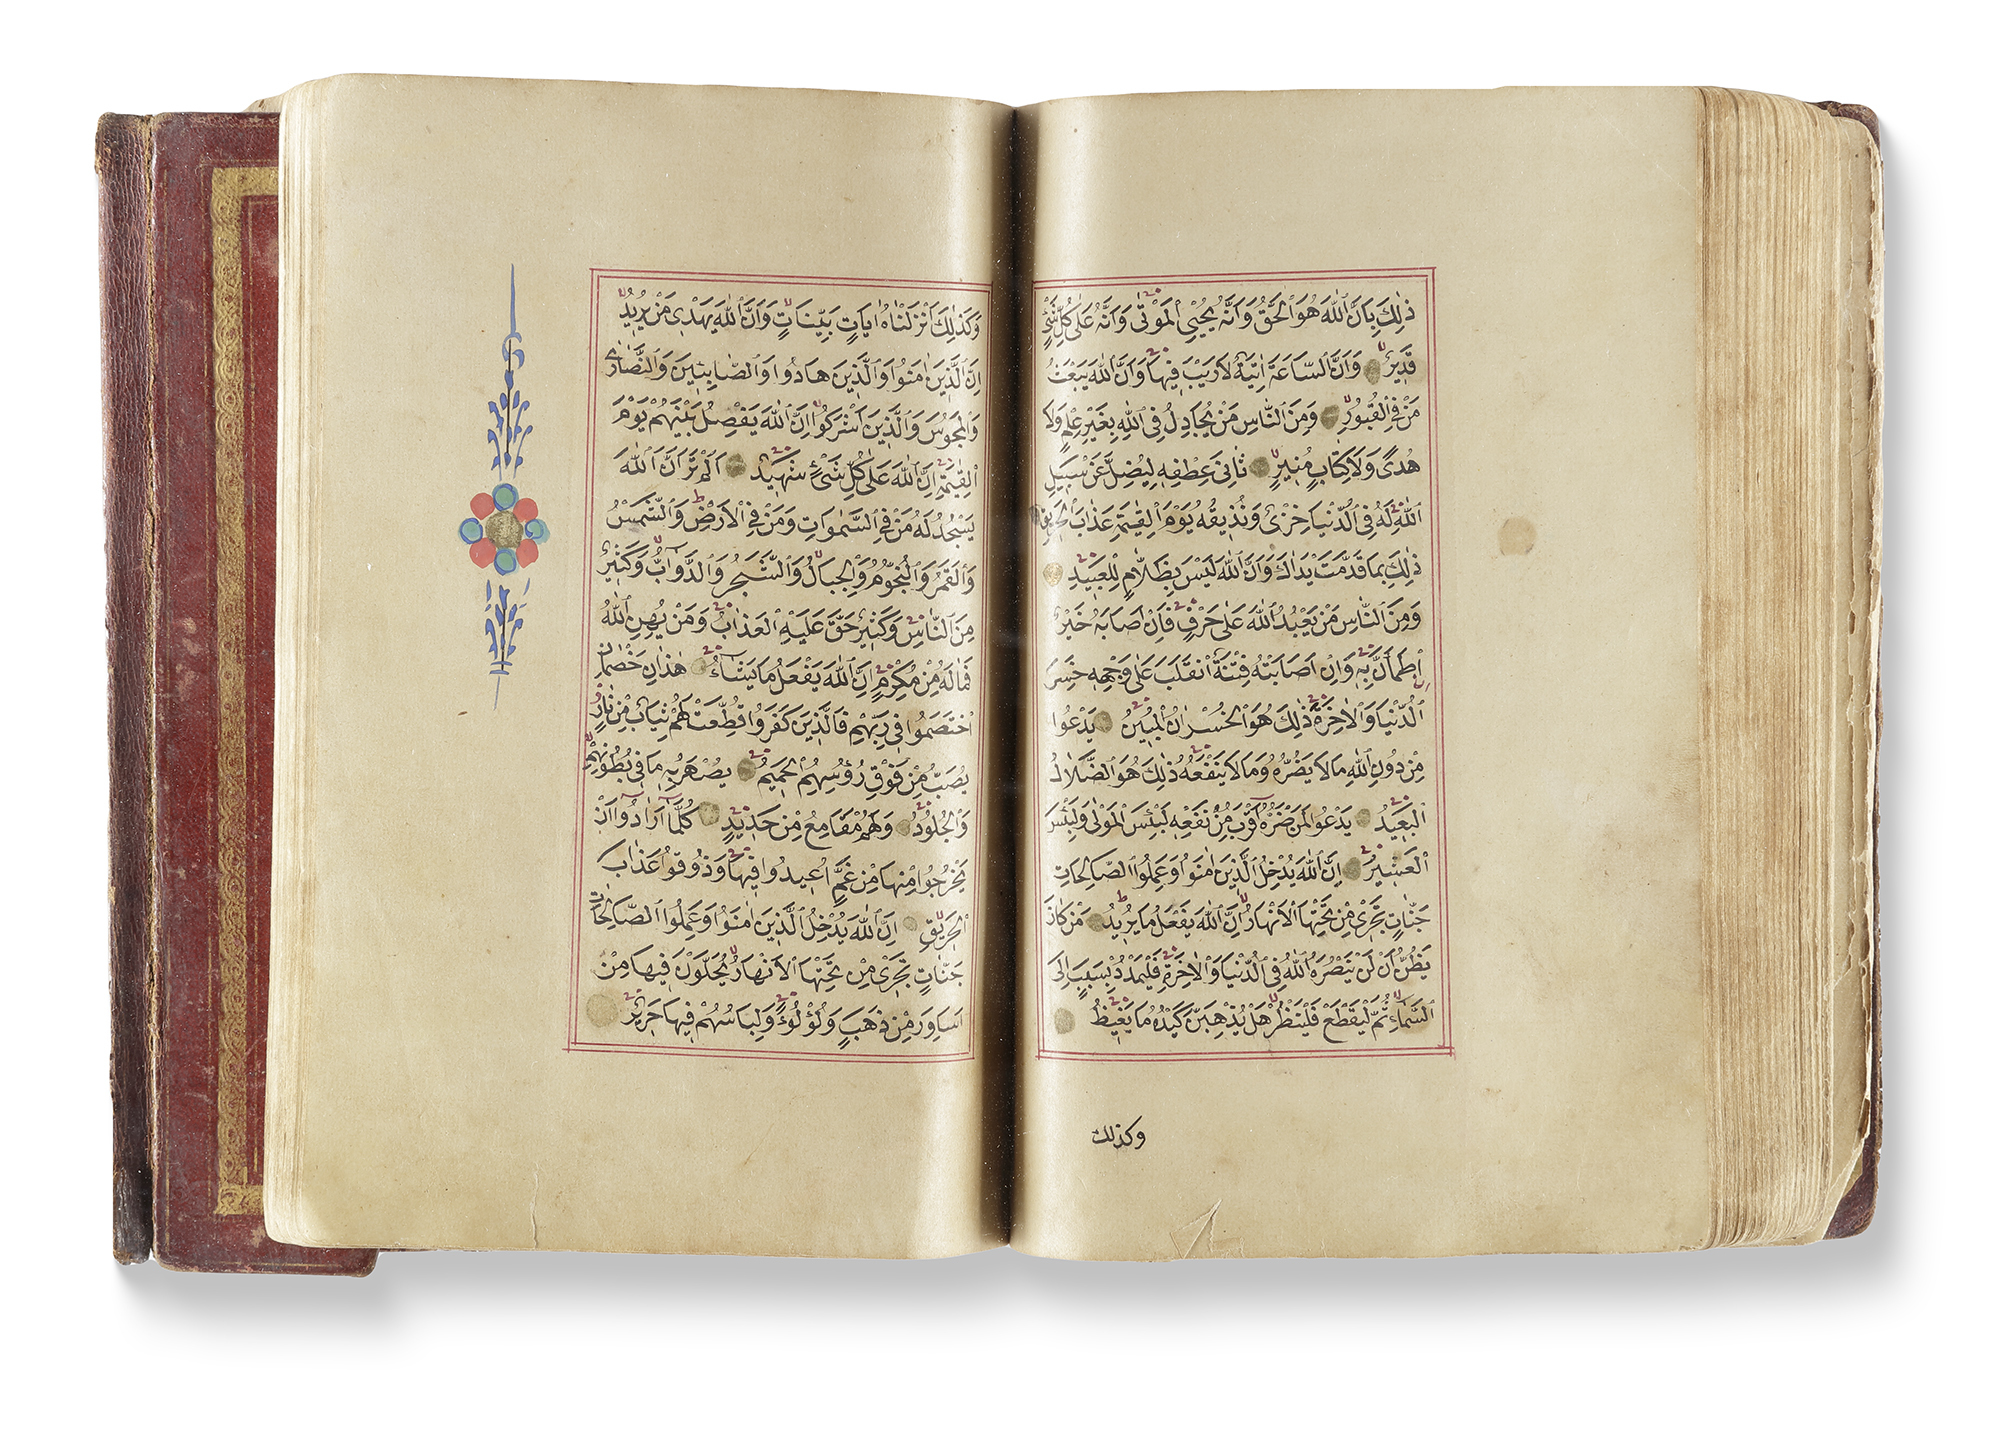 ذٰلِكَ بِاَنَّ اللّٰهَ هُوَ الْحَقُّ وَاَنَّهُ يُحْيِي الْمَوْتٰى وَاَنَّهُ عَلٰى كُلِّ شَيْءٍ
قَدِيرٌ وَاَنَّ السَّاعَةَ اٰتِيَةٌ لَا رَيْبَ فِيهَا وَاَنَّ اللّٰهَ يَبْعَثُ
مَنْ فِي الْقُبُورِ وَمِنَ النَّاسِ مَنْ يُجَادِلُ فِي اللّٰهِ بِغَيْرِ عِلْمٍ وَلَا
هُدًى وَلَا كِتَابٍ مُنِيرٍ ثَانِيَ عِطْفِهِ لِيُضِلَّ عَنْ سَبِيلِ
اللّٰهِ لَهُ فِي الدُّنْيَا خِزْيٌ وَنُذِيقُهُ يَوْمَ الْقِيٰمَةِ عَذَابَ الْحَرِيقِ
ذٰلِكَ بِمَا قَدَّمَتْ يَدَاكَ وَاَنَّ اللّٰهَ لَيْسَ بِظَلَّامٍ لِلْعَبِيدِ
وَمِنَ النَّاسِ مَنْ يَعْبُدُ اللّٰهَ عَلٰى حَرْفٍ فَاِنْ اَصَابَهُ خَيْرٌ
اطْمَاَنَّ بِهِ وَاِنْ اَصَابَتْهُ فِتْنَةٌ انْقَلَبَ عَلٰى وَجْهِهِ خَسِرَ
الدُّنْيَا وَالْاٰخِرَةَ ذٰلِكَ هُوَ الْخُسْرَانُ الْمُبِينُ يَدْعُوا
مِنْ دُونِ اللّٰهِ مَا لَا يَضُرُّهُ وَمَا لَا يَنْفَعُهُ ذٰلِكَ هُوَ الضَّلَالُ
الْبَعِيدُ يَدْعُوا لَمَنْ ضَرُّهُ اَقْرَبُ مِنْ نَفْعِهِ لَبِئْسَ الْمَوْلٰى وَلَبِئْسَ
الْعَشِيرُ اِنَّ اللّٰهَ يُدْخِلُ الَّذِينَ اٰمَنُوا وَعَمِلُوا الصَّالِحَاتِ
جَنَّاتٍ تَجْرِي مِنْ تَحْتِهَا الْاَنْهَارُ اِنَّ اللّٰهَ يَفْعَلُ مَا يُرِيدُ مَنْ كَانَ
يَظُنُّ اَنْ لَنْ يَنْصُرَهُ اللّٰهُ فِي الدُّنْيَا وَالْاٰخِرَةِ فَلْيَمْدُدْ بِسَبَبٍ اِلَى
السَّمَاءِ ثُمَّ لْيَقْطَعْ فَلْيَنْظُرْ هَلْ يُذْهِبَنَّ كَيْدُهُ مَا يَغِيظُ
وكذلك
وَكَذٰلِكَ اَنْزَلْنَاهُ اٰيَاتٍ بَيِّنَاتٍ وَاَنَّ اللّٰهَ يَهْدِي مَنْ يُرِيدُ
اِنَّ الَّذِينَ اٰمَنُوا وَالَّذِينَ هَادُوا وَالصَّابِئِينَ وَالنَّصَارٰى
وَالْمَجُوسَ وَالَّذِينَ اَشْرَكُوا اِنَّ اللّٰهَ يَفْصِلُ بَيْنَهُمْ يَوْمَ
الْقِيٰمَةِ اِنَّ اللّٰهَ عَلٰى كُلِّ شَيْءٍ شَهِيدٌ اَلَمْ تَرَ اَنَّ اللّٰهَ
يَسْجُدُ لَهُ مَنْ فِي السَّمٰوَاتِ وَمَنْ فِي الْاَرْضِ وَالشَّمْسُ
وَالْقَمَرُ وَالنُّجُومُ وَالْجِبَالُ وَالشَّجَرُ وَالدَّوَابُّ وَكَثِيرٌ
مِنَ النَّاسِ وَكَثِيرٌ حَقَّ عَلَيْهِ الْعَذَابُ وَمَنْ يُهِنِ اللّٰهُ
فَمَا لَهُ مِنْ مُكْرِمٍ اِنَّ اللّٰهَ يَفْعَلُ مَا يَشَاءُ هٰذَانِ خَصْمَانِ
اخْتَصَمُوا فِي رَبِّهِمْ فَالَّذِينَ كَفَرُوا قُطِّعَتْ لَهُمْ ثِيَابٌ مِنْ نَارٍ
يُصَبُّ مِنْ فَوْقِ رُؤُسِهِمُ الْحَمِيمُ يُصْهَرُ بِهِ مَا فِي بُطُونِهِمْ
وَالْجُلُودُ وَلَهُمْ مَقَامِعُ مِنْ حَدِيدٍ كُلَّمَا اَرَادُوا اَنْ
يَخْرُجُوا مِنْهَا مِنْ غَمٍّ اُعِيدُوا فِيهَا وَذُوقُوا عَذَابَ
الْحَرِيقِ اِنَّ اللّٰهَ يُدْخِلُ الَّذِينَ اٰمَنُوا وَعَمِلُوا الصَّالِحَاتِ
جَنَّاتٍ تَجْرِي مِنْ تَحْتِهَا الْاَنْهَارُ يُحَلَّوْنَ فِيهَا مِنْ
اَسَاوِرَ مِنْ ذَهَبٍ وَلُؤْلُؤًا وَلِبَاسُهُمْ فِيهَا حَرِيرٌ